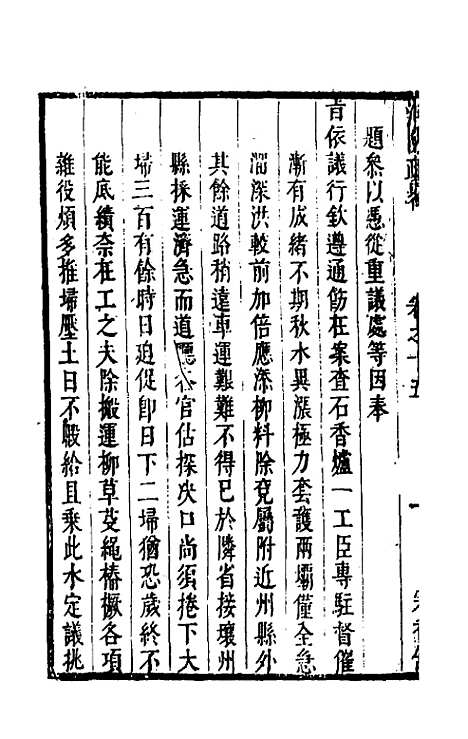 題叅以憑從重議處等因奉
旨依議行欽遵通飭在案查石香爐一工臣專駐督催
漸有成緒不期秋水異漲極力套護兩壩僅全急
溜深洪較前加倍應添柳料除兗屬附近州縣外
其餘道路稍遠車運艱難不得已於隣省接壤州
縣採運濟急而道廳各官估探决口尚須捲下大
埽三百有餘時日迫促卽日下二埽猶恐歲終不
能底績奈在工之夫除搬運柳草芟繩樁橛各項
雜役煩多推埽壓土日不暇給且乗此水定議挑
卷之十五
一